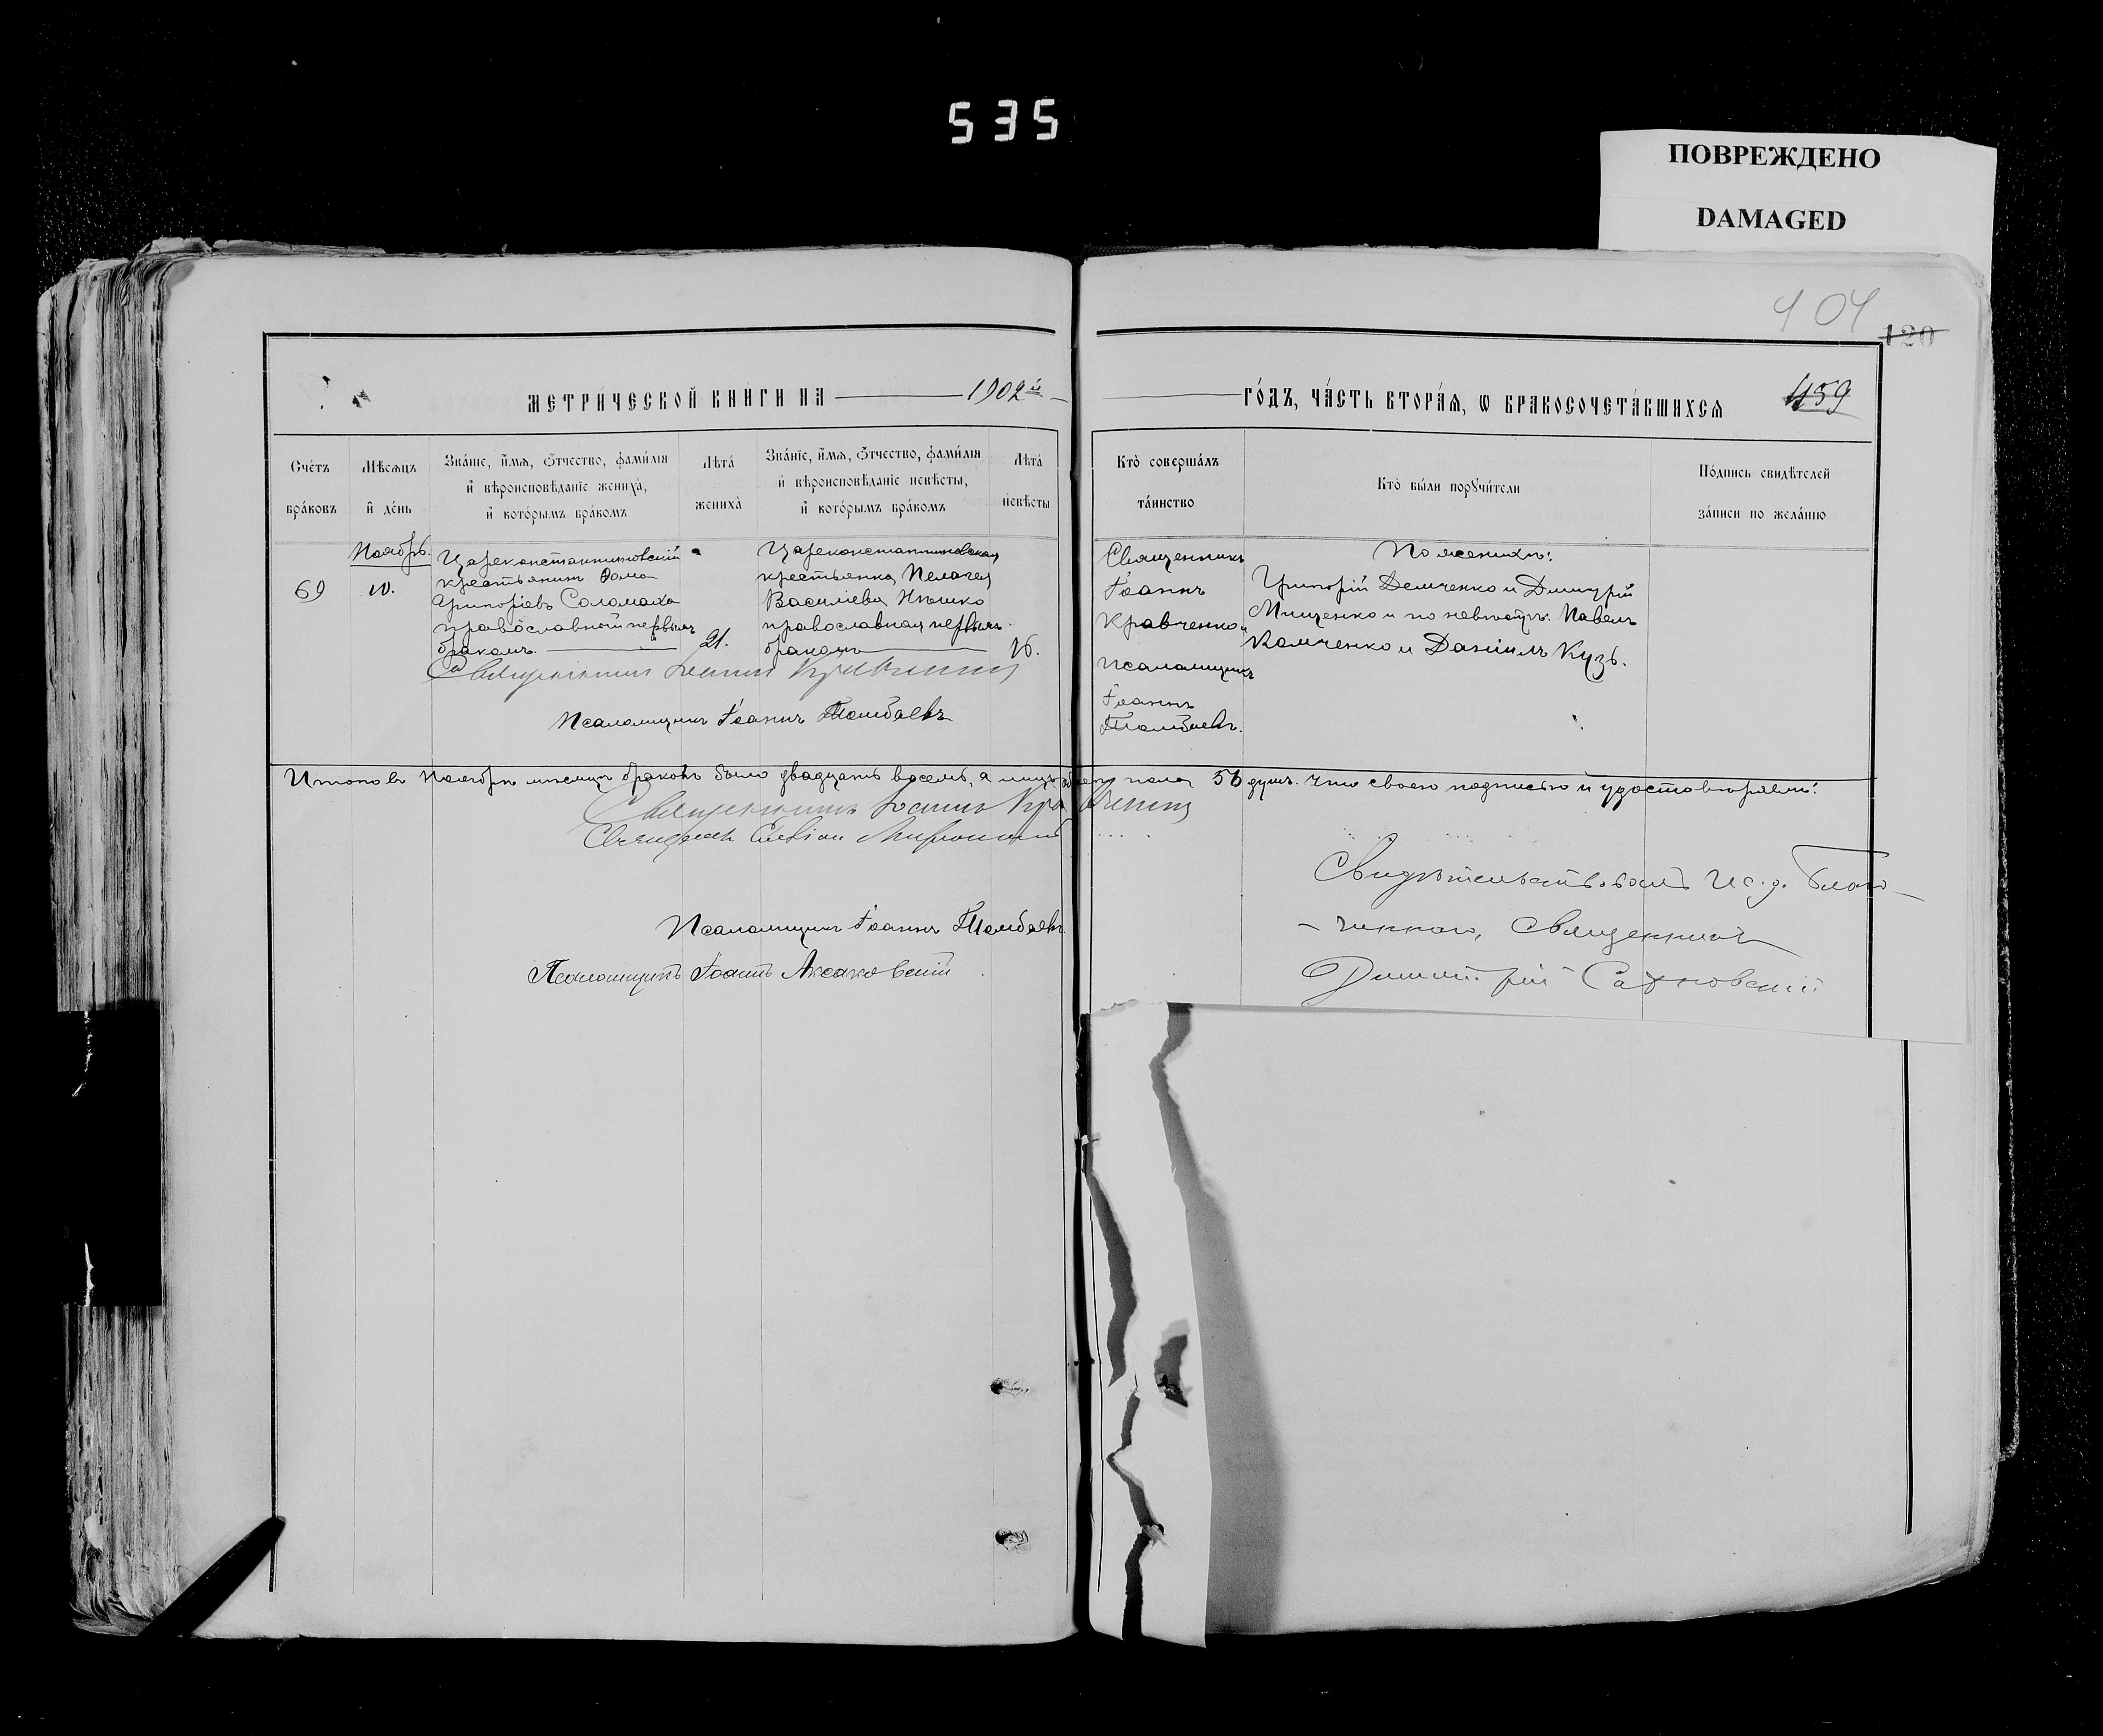 535
ПОВРЕЖДЕНО
DAMAGED
404
120
МЕТРИ́ЧЕСКОЙ КНИ́ГИ НА 1902й
ГО́ДЪ, ЧА́СТЬ ВТОРА́Ѧ, Ѡ БРАКОСОЧЕТА́ВШИХСѦ
459
Сче́тъ бра́ковъ
Мѣ́сѧцъ и҆ де́нь
Зва́нїе, и҆́мѧ, ѻ҆́тчество, фами́лїѧ
и҆ вѣроисповѣ́данїе жениха̀,
и҆ кото́рымъ бра́комъ
Лѣта̀ жениха̀
Зва́нїе, и҆́мѧ, ѻ҆́тчество, фами́лїѧ
и҆ вѣроисповѣ́данїе невѣ́сты,
и҆ кото́рымъ бра́комъ
Лѣта̀ невѣ́сты
Кто̀ соверша́лъ
та́инство
Кто̀ бы́ли порꙋчи́тели
По́дпись свидѣ́телей
за́писи по жела́нїю
Ноябрь.
69
10.
Цареконстантиновскій
крестьянинъ Ѳома
Григоріевъ Соломаха
православный первымъ
бракомъ.
21.
Цареконстантиновская
крестьянка Пелагея
Василіева Ияшко
православная первымъ
бракомъ
16.
Священникъ
Іоаннъ
Кравченко и
псаломщикъ
Іоаннъ
По женихѣ:
Григорій Демченко и Димитрій
Мищенко и по невѣстѣ: Павелъ
Камченко и Даніилъ Кузь.
Священникъ Іоаннъ Кравченко
Псаломщикъ Іоаннъ
Итого въ Ноябрѣ мѣсяцѣ браковъ было двадцать восемь, а лицъ обоего пола 56 душъ. Что своею подписью и удостовѣряемъ:
Священникъ Іоаннъ Кравченко
Священникъ
Псаломщикъ Іоаннъ
Псаломщикъ Іоаннъ Аксаковскій
Свидѣтельствовалъ И. д. Благо-
-чиннаго, Священникъ
Димитрій